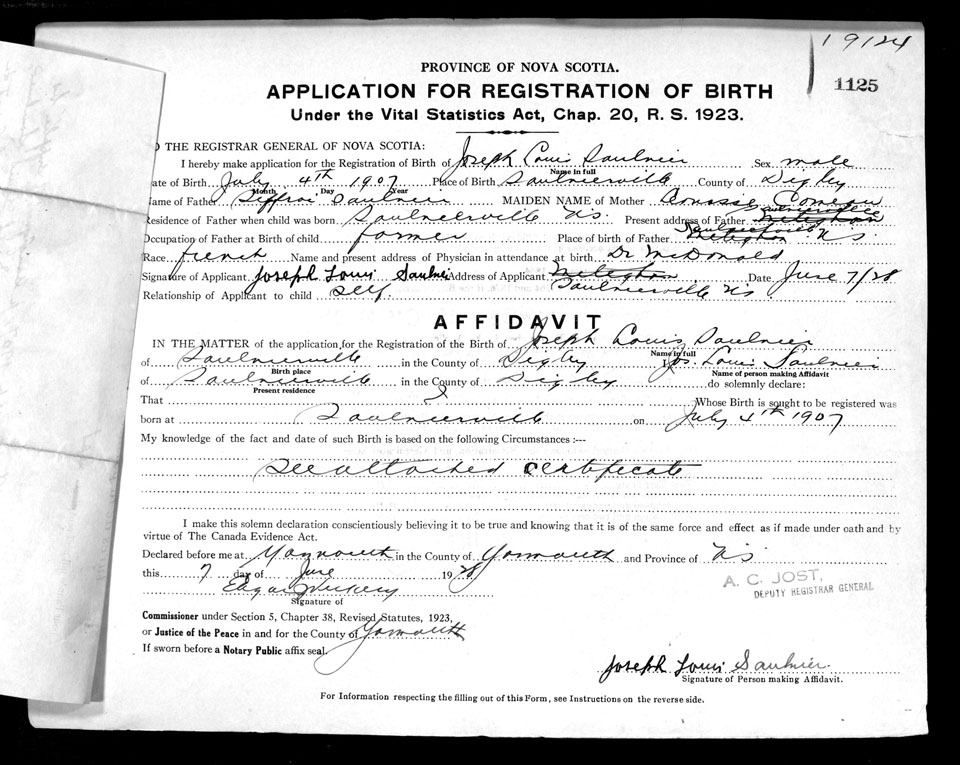 19124
1125
PROVINCE OF NOVA SCOTIA.
APPLICATION FOR REGISTRATION OF BIRTH
Under the Vital Statistics Act, Chap. 20, R. S. 1923.
O THE REGISTRAR GENERAL OF NOVA SCOTIA:
I hereby make application for the Registration of Birth of Joseph Louis Saulnier Sex male
Name in full
ate of Birth July 4th 1907 Place of Birth Saulnierville County of Digby
Month Day Year
ame of Father Saulnier MAIDEN NAME of Mother Comeau
Saulnierville
Residence of Father when child was born Saulnierville N.S. Present address of Father Meteghan
Saulnierville
Occupation of Father at Birth of child farmer Place of birth of Father Meteghan N.S.
Race french Name and present address of Physician in attendance at birth Dr McDonald
Signature of Applicant Joseph Louis Saulnier Address of Applicant Meteghan Date June 7/28
Relationship of Applicant to child Self Saulnierville N.S.
AFFIDAVIT
IN THE MATTER of the application for the Registration of the Birth of Joseph Louis Saulnier
Name in full
of Saulnierville in the County of Digby I, Jos. Louis Saulnier
Birth place Name of person making Affidavit
of Saulnierville in the County of Digby do solemnly declare:
Present residence
That I Whose Birth is sought to be registered was
born at Saulnierville on July 4th 1907
My knowledge of the fact and date of such Birth is based on the following Circumstances :—
See attached certificate
I make this solemn declaration conscientiously believing it to be true and knowing that it is of the same force and effect as if made under oath and by
virtue of The Canada Evidence Act.
Declared before me at Yarmouth in the County of Yarmouth and Province of N.S.
this 7 day of June 1928
A. C. JOST,
DEPUTY REGISTRAR GENERAL
Edgar
Signature of
Commissioner under Section 5, Chapter 38, Revised Statutes, 1923,
or Justice of the Peace in and for the County of Yarmouth
If sworn before a Notary Public affix seal.
Joseph Louis Saulnier
Signature of Person making Affidavit.
For Information respecting the filling out of this Form, see Instructions on the reverse side.